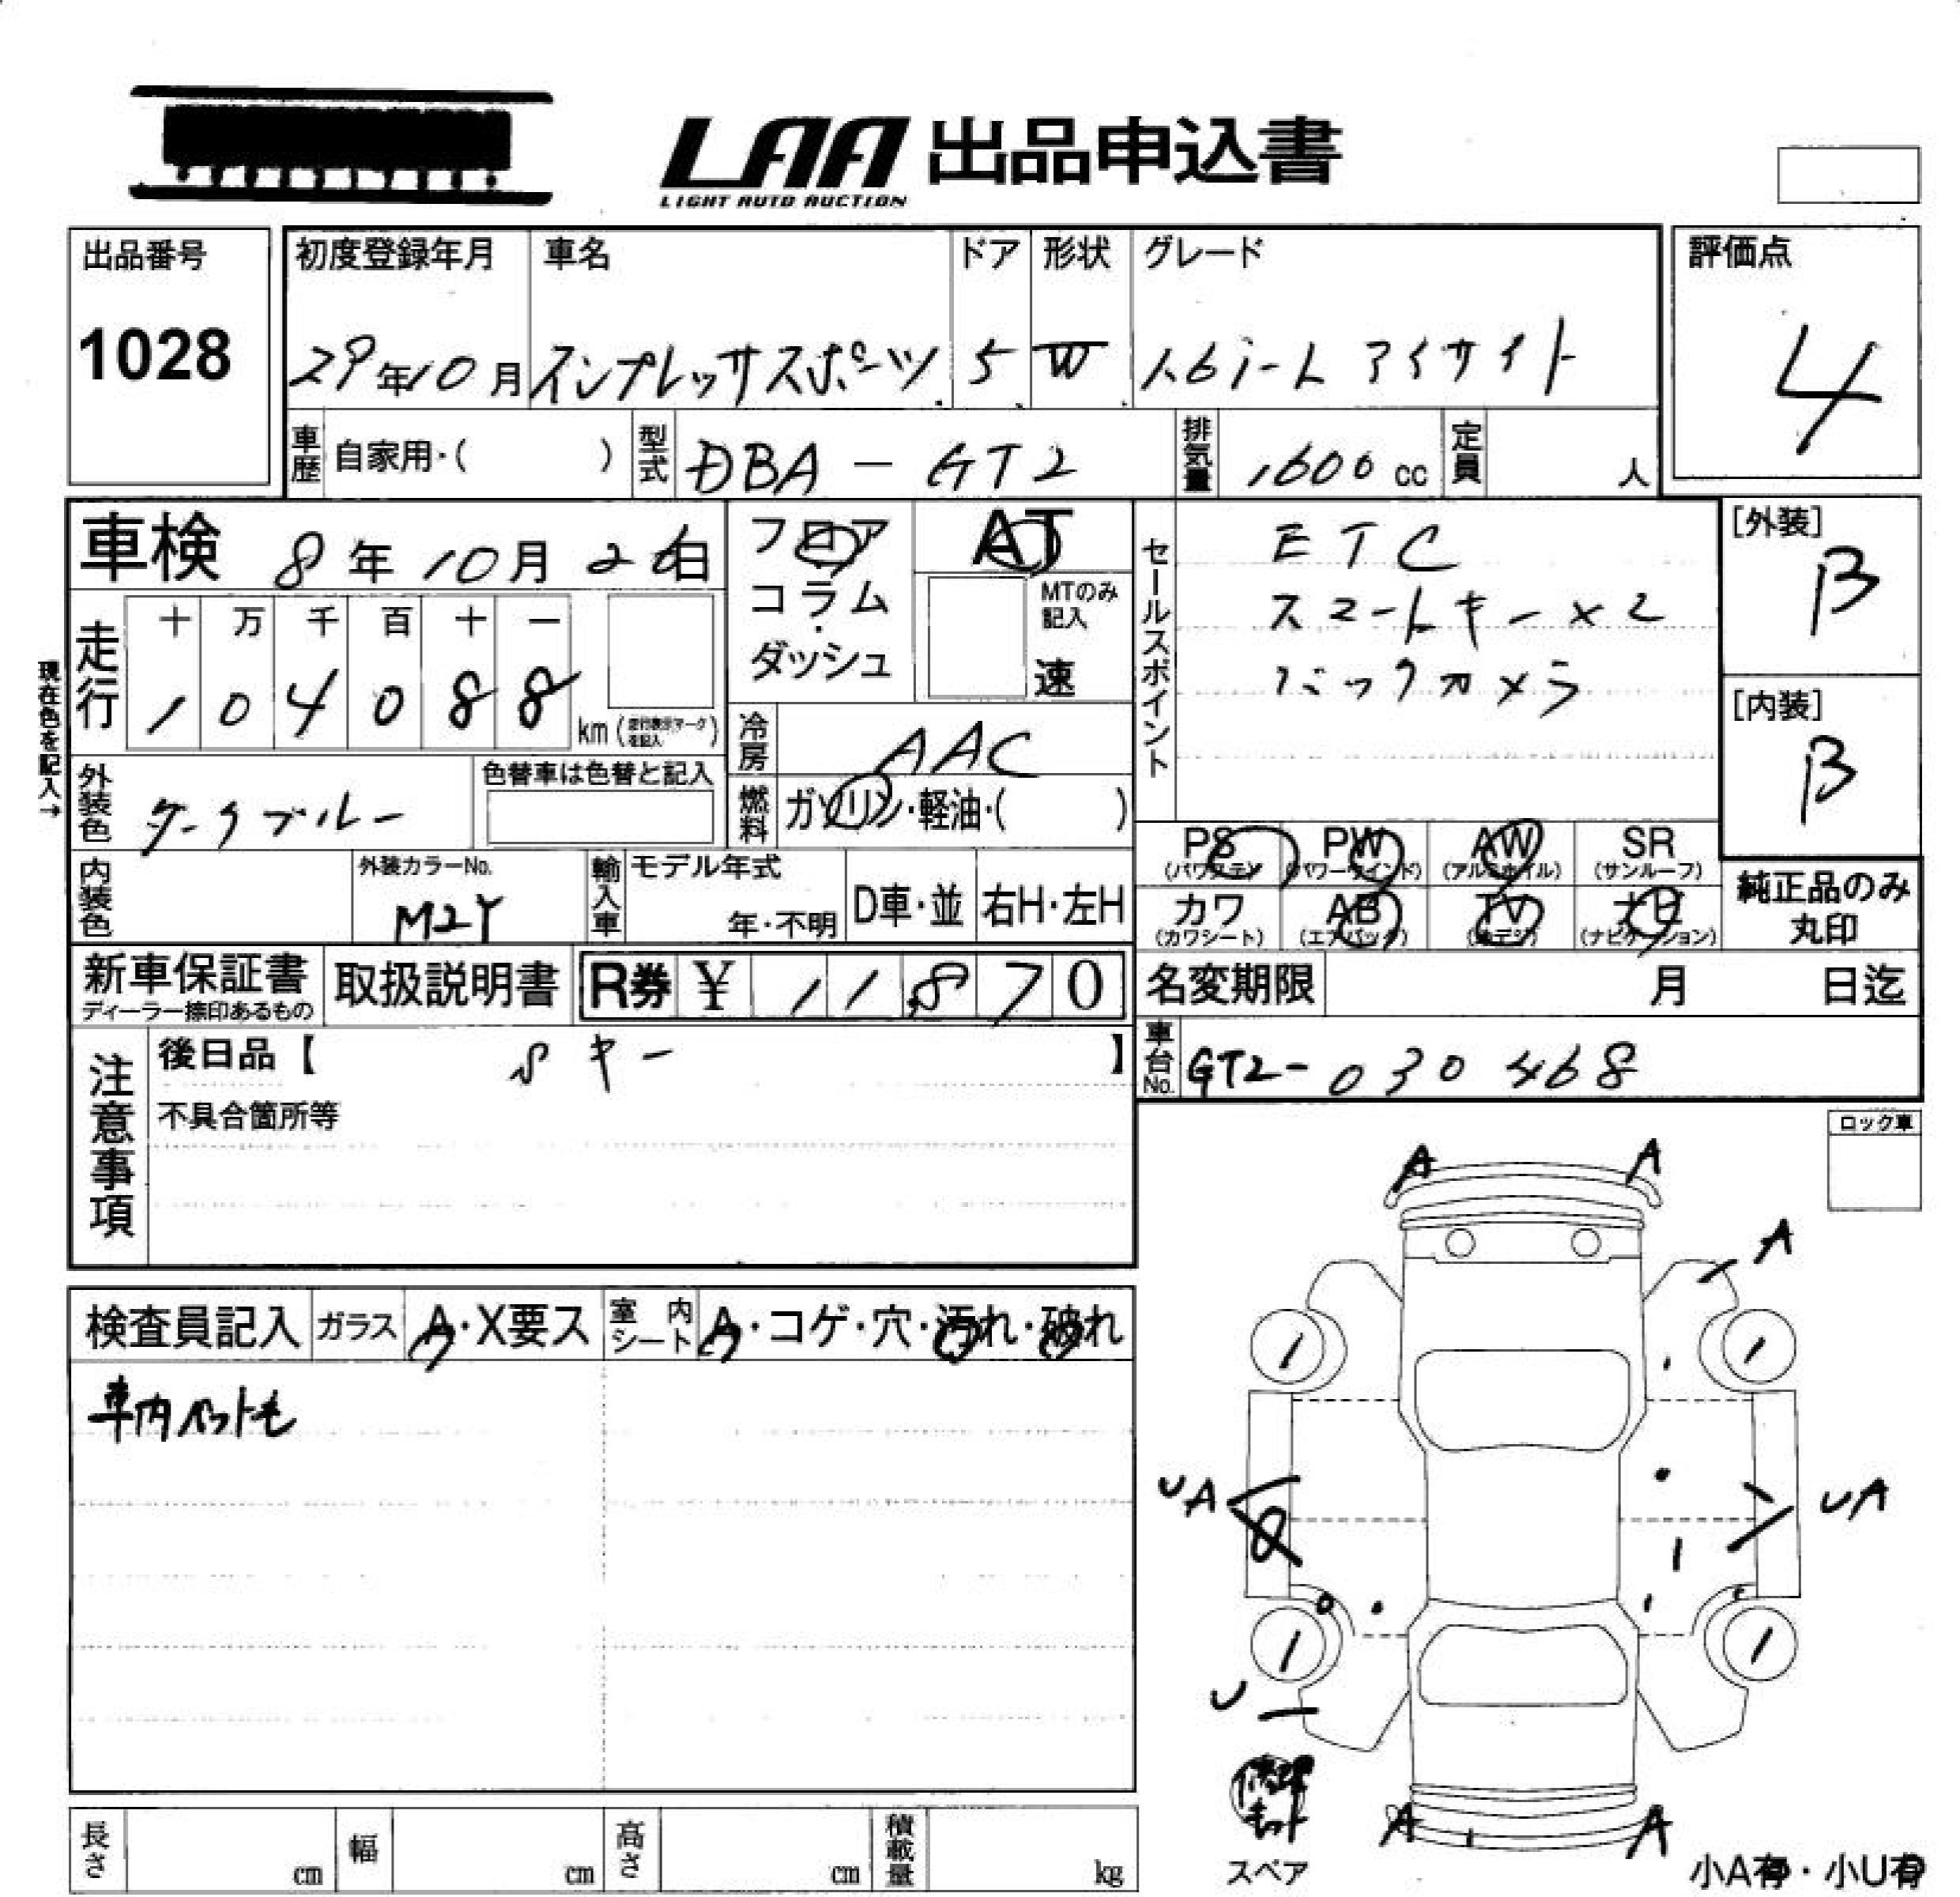 LAA 出品申込書
LIGHT AUTO AUCTION
出品番号
1028
初度登録年月
29年10月
車名
インプレッサスポーツ
ドア
5
形状
W
グレード
1.6i-L アイサイト
評価点
4
車歴
自家用・( )
型式
DBA-GT2
排気量
1600cc
定員
人
車検 8年10月26日
フロア
コラム
・
ダッシュ
AT
MTのみ
記入
速
セールスポイント
ETC
スマートキー×2
バックカメラ
[外装]
B
[内装]
B
現在色を記入→
走行
十 万 千 百 十 一
1 0 4 0 8 8
km(走行表示マークを記入)
冷房
AAC
外装色
ダークブルー
色替車は色替と記入
燃料
ガソリン・軽油・( )
PS
(パワステ)
PW
(パワーウインド)
AW
(アルミホイル)
SR
(サンルーフ)
カワ
(カワシート)
AB
(エアバック)
TV
ナビ
(ナビゲーション)
純正品のみ
丸印
内装色
外装カラーNo.
M2Y
輸入車
モデル年式
年・不明
D車・並
右H・左H
新車保証書
ディーラー捺印あるもの
取扱説明書
R券 ¥ 11,870
名変期限
月 日迄
注意事項
後日品【 Sキー 】
不具合箇所等
車台No.
GT2-030468
ロック車
検査員記入
ガラス
A・X要ス
室内
シート
A・コゲ・穴・汚れ・破れ
車内ペット毛
A A
A
UA
UA
U
修理キット
スペア
A A
小A有・小U有
長さ
cm
幅
cm
高さ
cm
積載量
kg